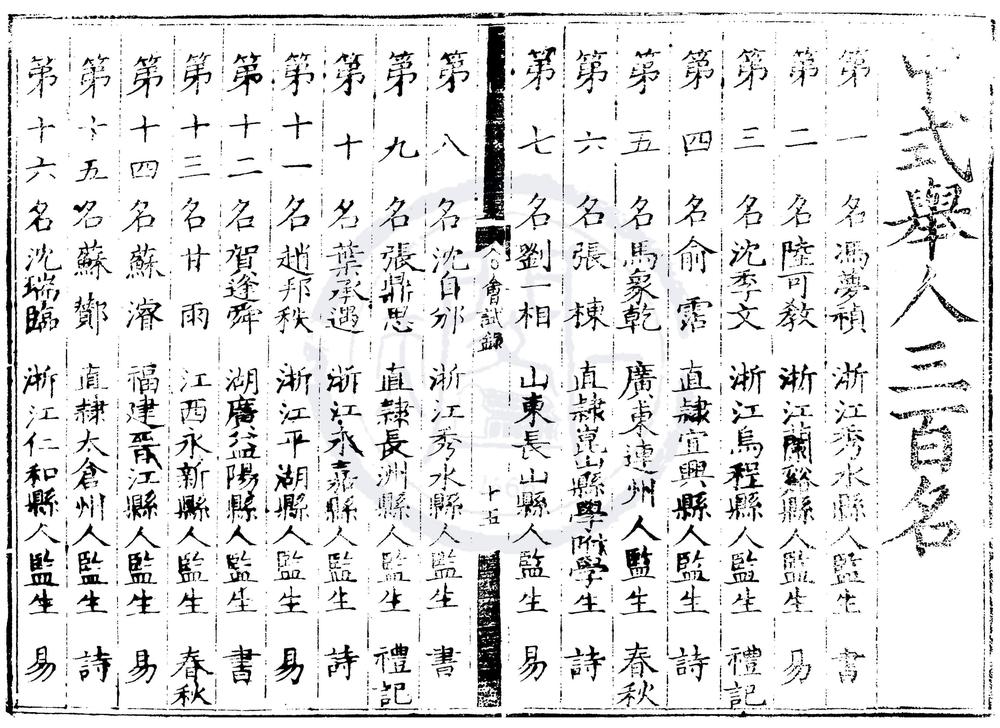 中式舉人三百名
第一名馮夢禎浙江秀水縣人監生書
第二名陸可教浙江蘭谿縣人監生易
第三名沈季文浙江烏程縣人監生禮記
第四名俞霑直隸宜興縣人監生詩
第五名馬象乾廣東連州人監生春秋
第六名張棟直隸崑山縣學附學生詩
第七名劉一相山東長山縣人監生易
會試錄
十五
第八名沈自邠浙江秀水縣人監生書
第九名張鼎思直隸長洲縣人監生禮記
第十名葉承遇浙江永嘉縣人監生詩
第十一名趙邦秩浙江平湖縣人監生易
第十二名賀逢舜湖廣益陽縣人監生書
第十三名甘雨江西永新縣人監生春秋
第十四名蘇濬福建晉江縣人監生易
第十五名蘇酇直隸太倉州人監生詩
第十六名沈瑞臨浙江仁和縣人監生易